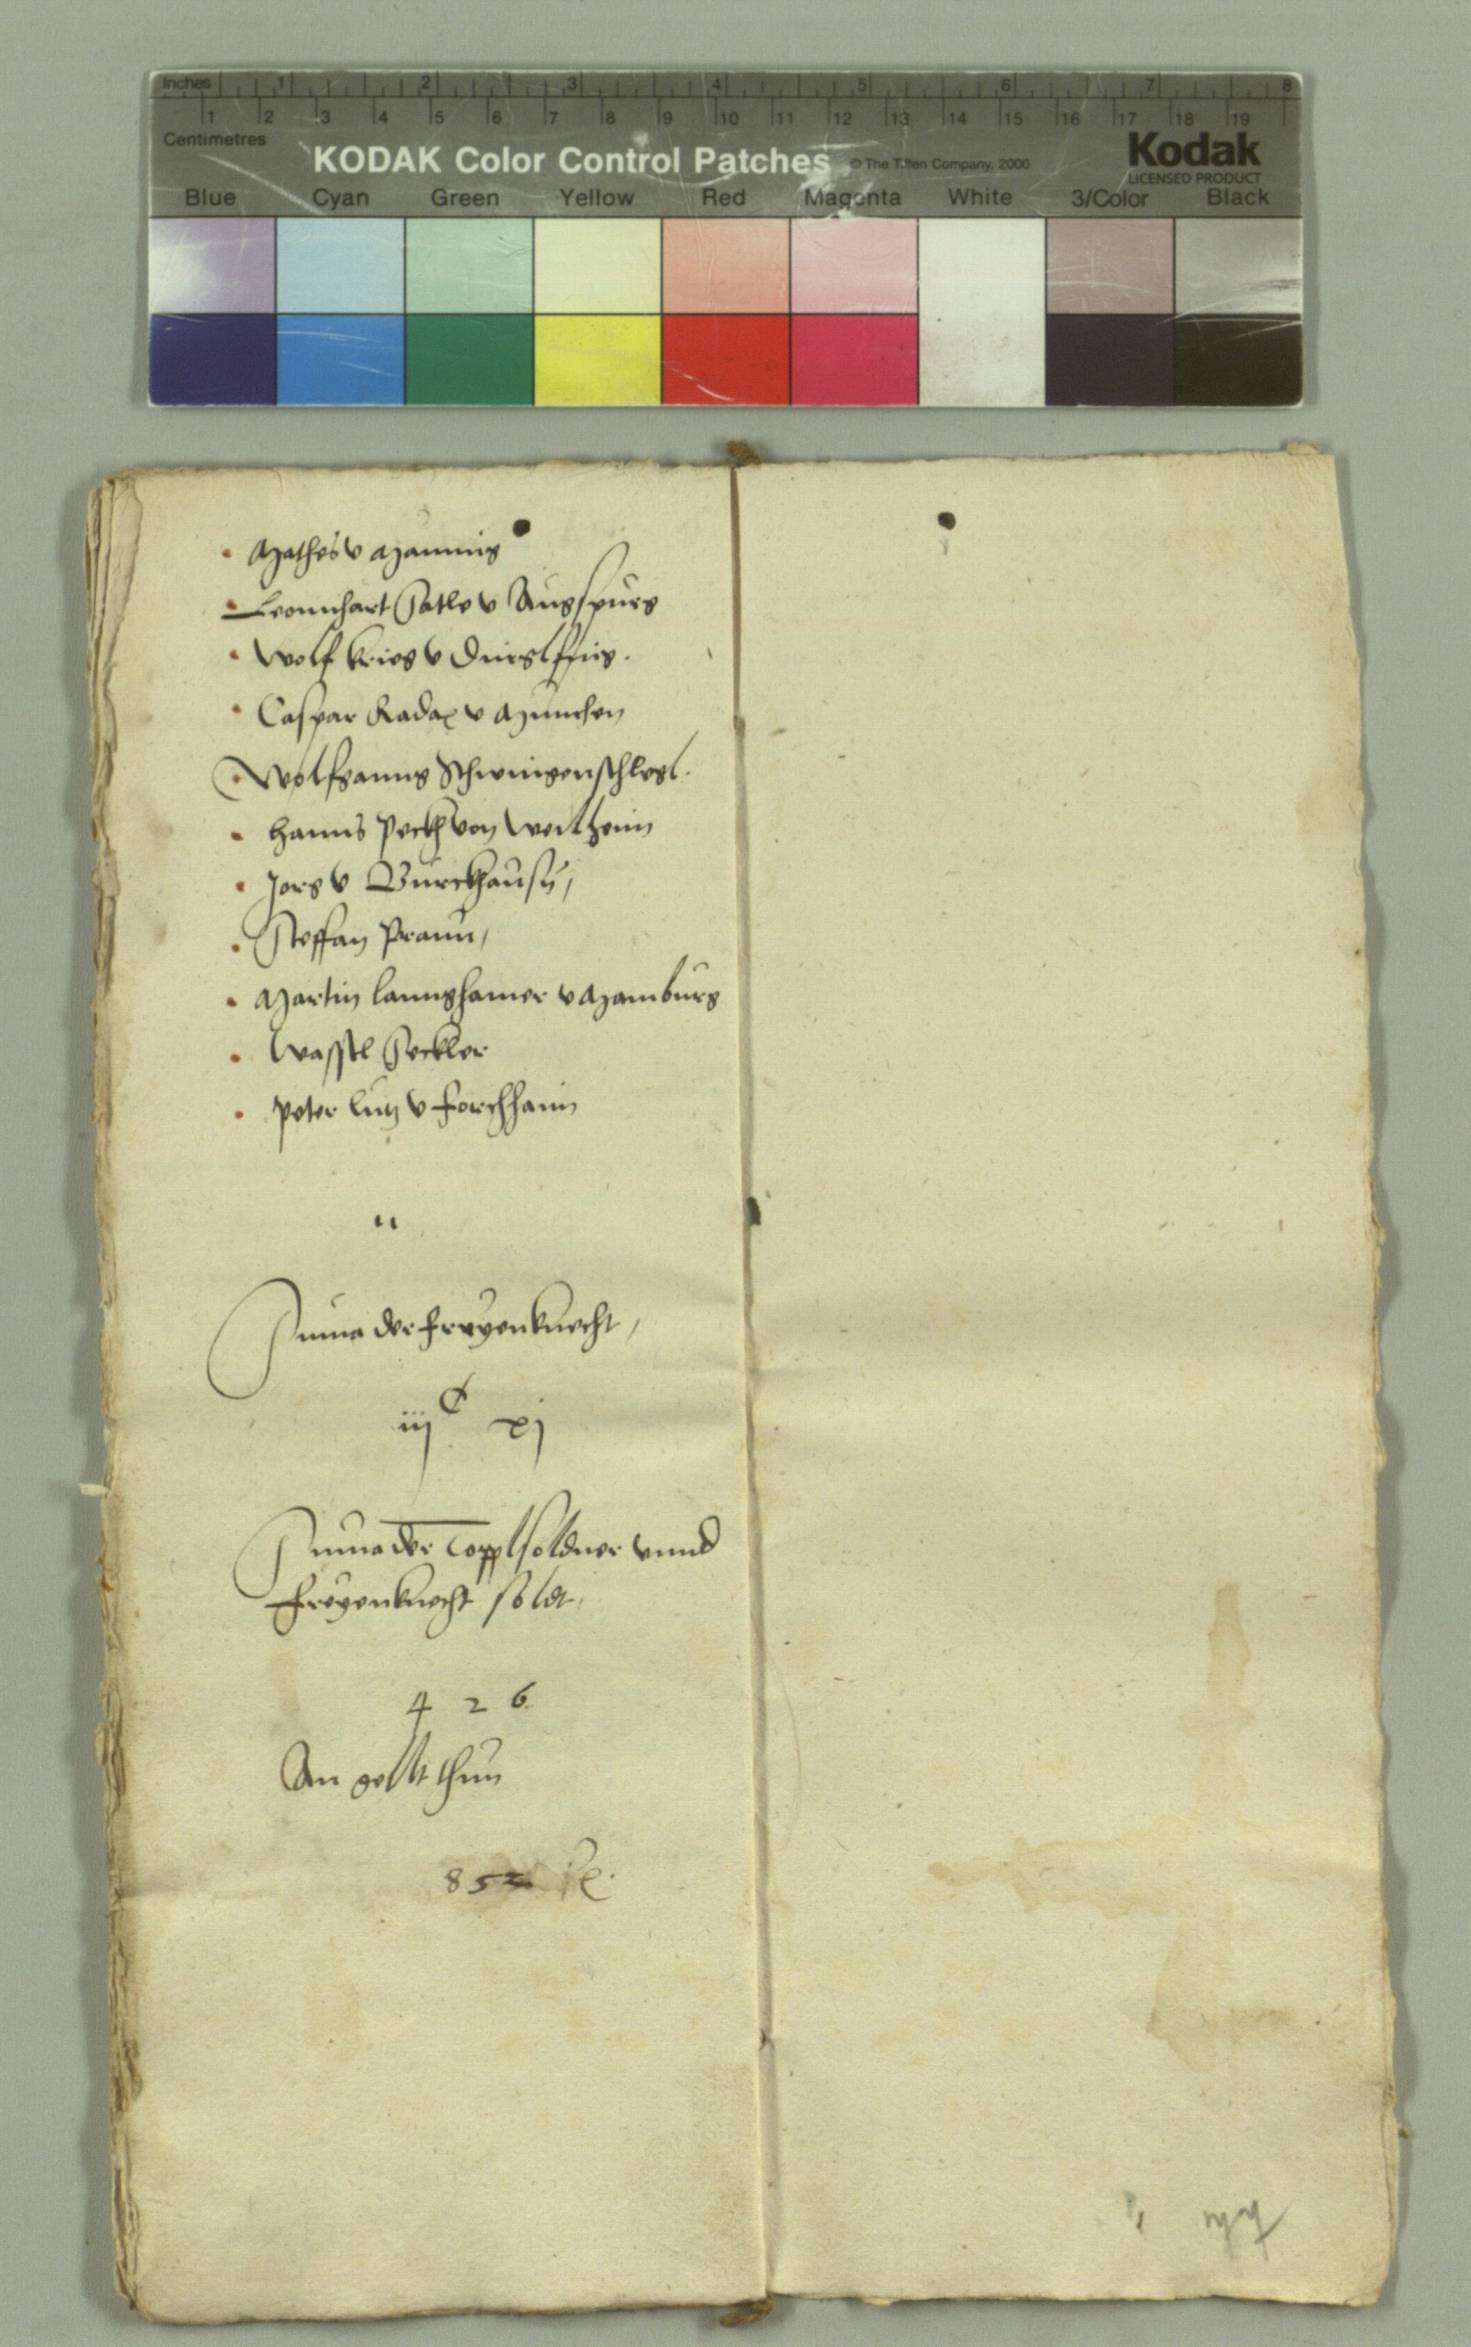 Inches 1 2 3 4 5 6 7 8
1 2 3 4 5 6 7 8 9 10 11 12 13 14 15 16 17 18 19
Centimetres
KODAK Color Control Patches © The Tiffen Company, 2000 Kodak
LICENSED PRODUCT
Blue Cyan Green Yellow Red Magenta White 3/Color Black
Mathes v Manning
Leonnhart Satle v Augspurg
Wolf krieg v
Caspar Radax v Munchen
Wolfganng Schweigenschlegl
Hanns Peckh von Weilheim
Jorg v Burckhausn
Steffan Praun
Martin lannghamer v Mamburg
Wasstl Seckler
Peter lutz v Forchhaim
Suma der freyenknecht
iijC xj
Suma der toppl soldner vnnd
freyenknecht soldt
4 2 6
An gellt thun
852